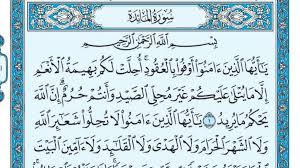 سُورَةُ المَائِدَةِ
بِسْمِ اللَّهِ الرَّحْمَٰنِ الرَّحِيمِ
يَٰٓأَيُّهَا ٱلَّذِينَ ءَامَنُوٓا۟ أَوْفُوا۟ بِٱلْعُقُودِ ۚ أُحِلَّتْ لَكُم بَهِيمَةُ ٱلْأَنْعَٰمِ
إِلَّا مَا يُتْلَىٰ عَلَيْكُمْ غَيْرَ مُحِلِّى ٱلصَّيْدِ وَأَنتُمْ حُرُمٌ ۗ إِنَّ ٱللَّهَ
يَحْكُمُ مَا يُرِيدُ ١ يَٰٓأَيُّهَا ٱلَّذِينَ ءَامَنُوا۟ لَا تُحِلُّوا۟ شَعَٰٓئِرَ ٱللَّهِ
وَلَا ٱلشَّهْرَ ٱلْحَرَامَ وَلَا ٱلْهَدْىَ وَلَا ٱلْقَلَٰٓئِدَ وَلَآ ءَآمِّينَ ٱلْبَيْتَ